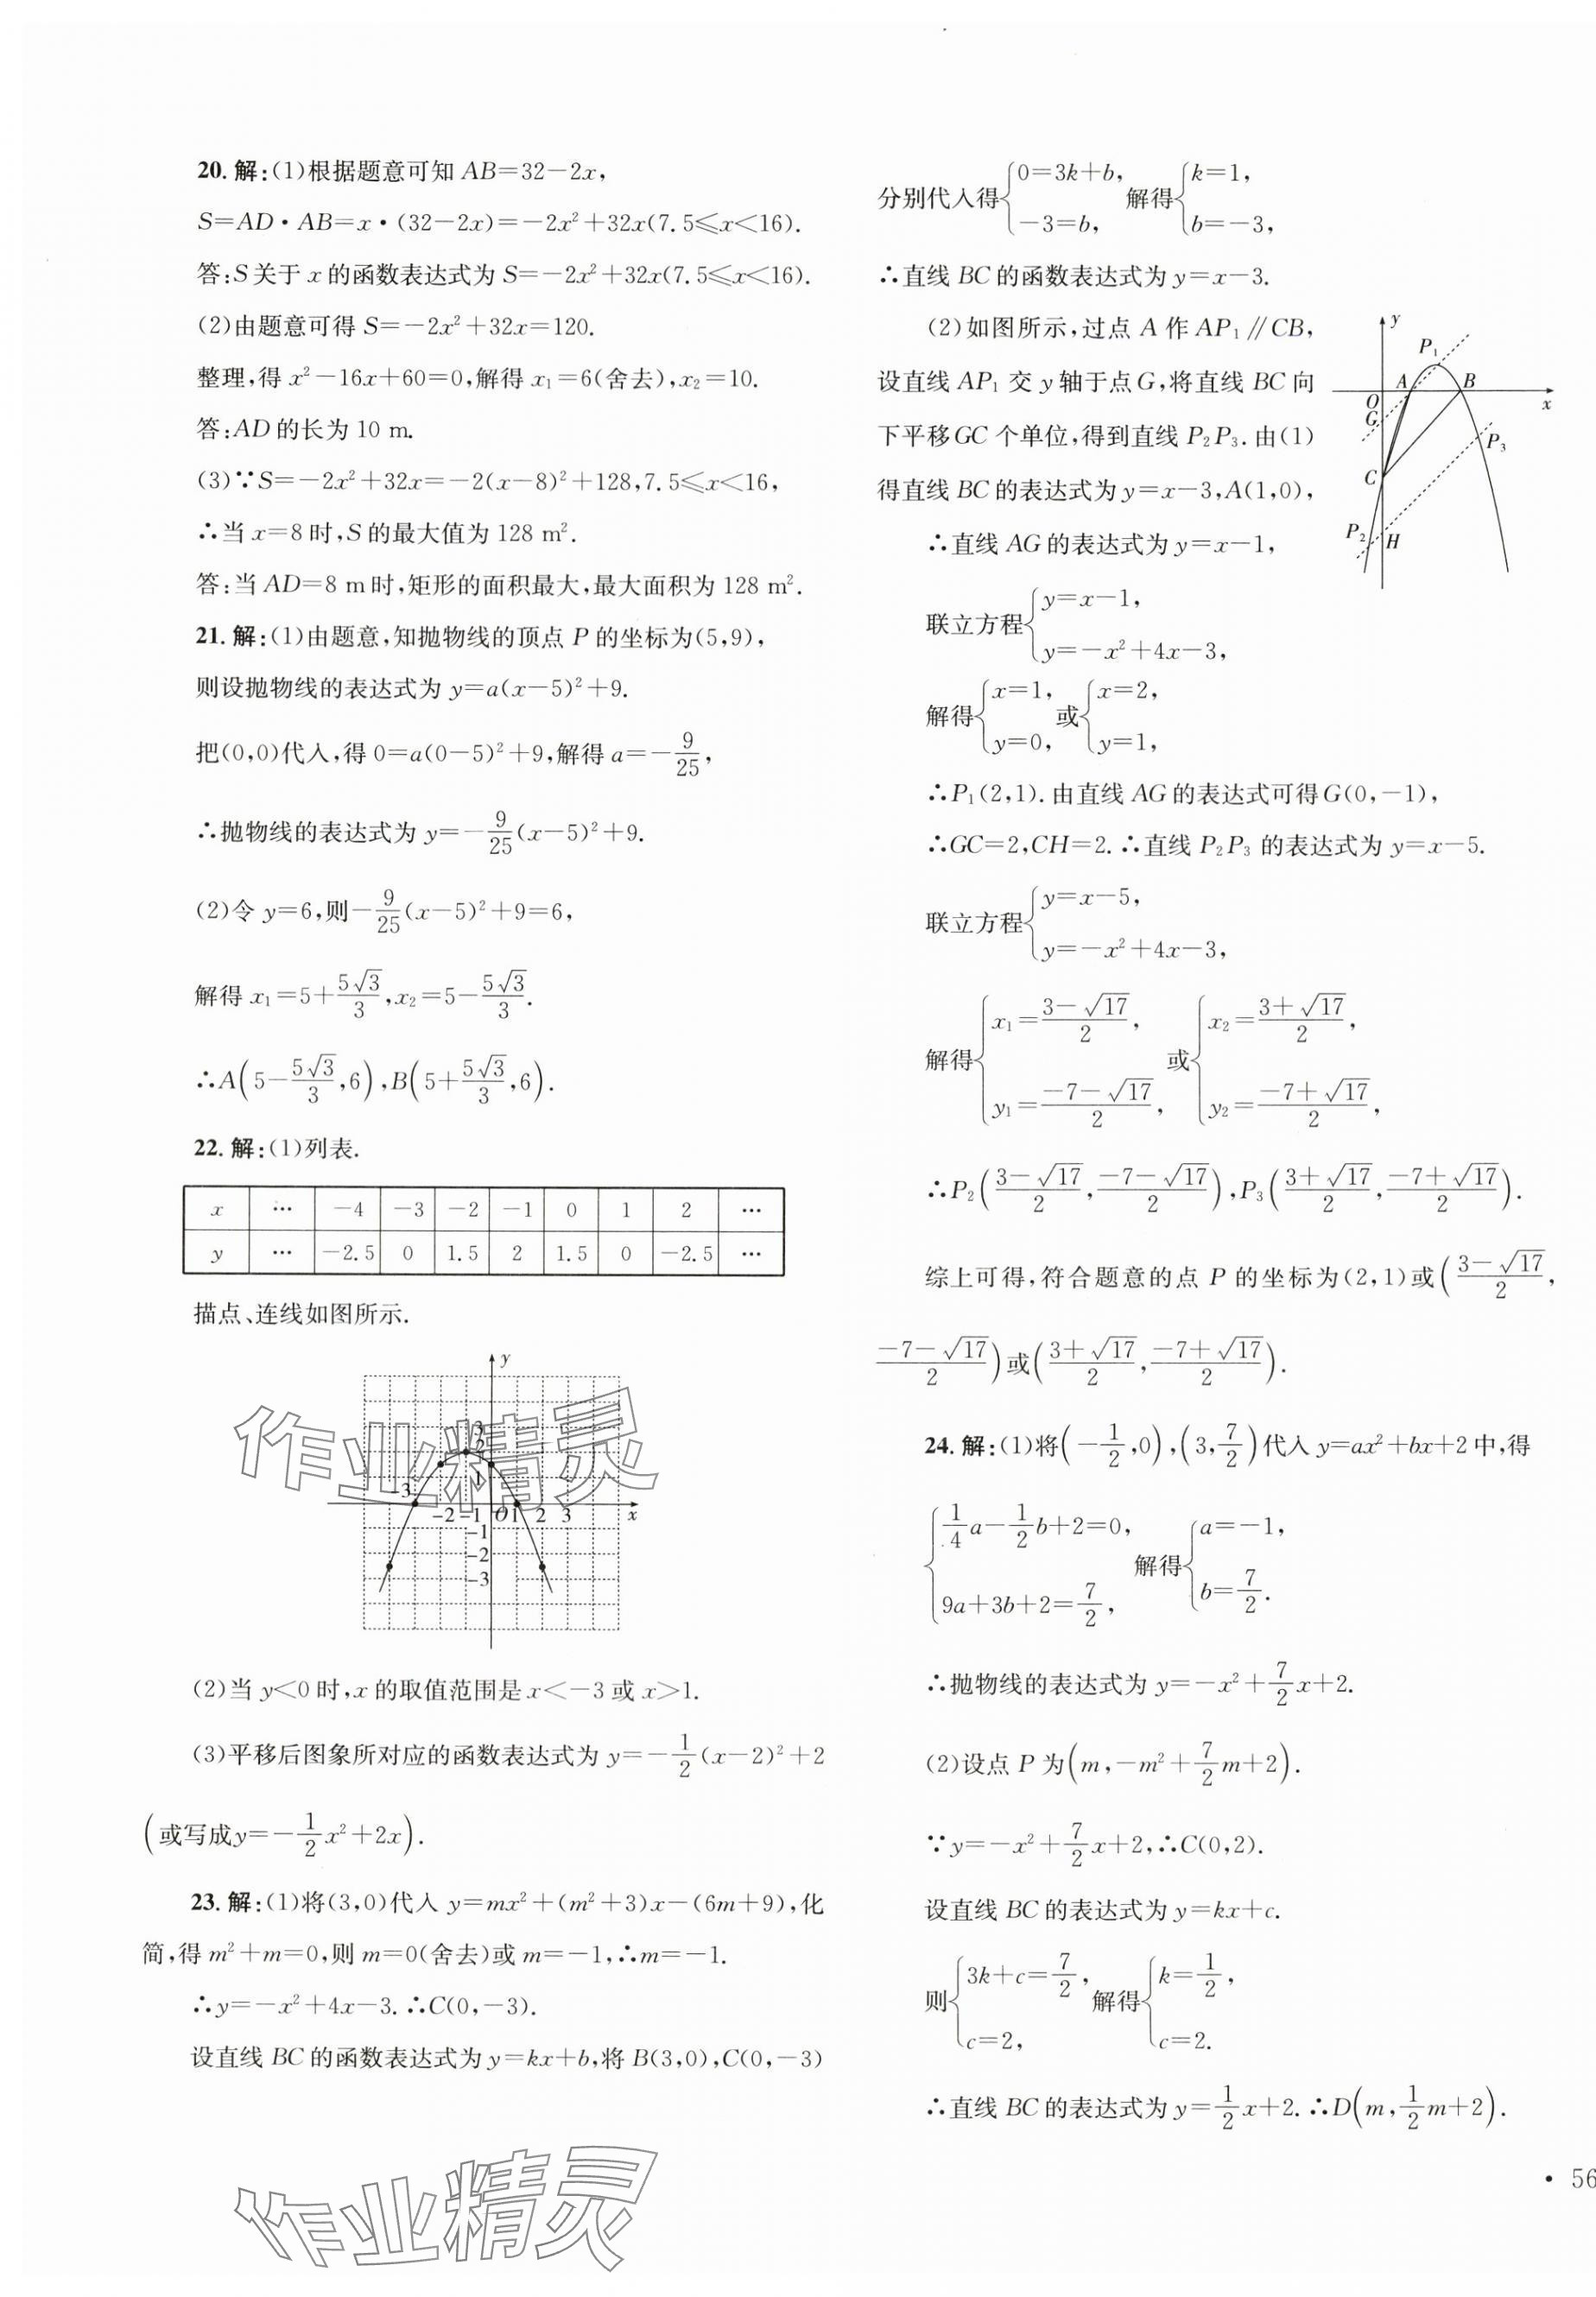 20. 解:(1)根据题意可知 AB=32-2x,
S=AD·AB=x·(32-2x)=-2x²+32x(7.5≤x<16).
答:S关于 x 的函数表达式为 S=-2x²+32x(7.5≤x<16).
(2)由题意可得 S=-2x²+32x=120.
整理,得 x²-16x+60=0,解得 x₁=6(舍去),x₂=10.
答:AD的长为 10 m.
(3)∵S=-2x²+32x=-2(x-8)²+128,7.5≤x<16,
∴当 x=8时,S的最大值为 128 m².
答:当 AD=8 m时,矩形的面积最大,最大面积为 128 m².
21. 解:(1)由题意,知抛物线的顶点 P 的坐标为(5,9),
则设抛物线的表达式为 y=a(x-5)²+9.
把(0,0)代入,得 0=a(0-5)²+9,解得 a=-9/25,
∴抛物线的表达式为 y=-9/25(x-5)²+9.
(2)令 y=6,则-9/25(x-5)²+9=6,
解得 x₁=5+5√3/3,x₂=5-5√3/3.
∴A(5-5√3/3,6),B(5+5√3/3,6).
22. 解:(1)列表.
x … -4 -3 -2 -1 0 1 2 …
y … -2.5 0 1.5 2 1.5 0 -2.5 …
描点、连线如图所示.
y
3
2
1
-3
-2 -1 O 1 2 3 x
-1
-2
-3
作业精灵
(2)当 y<0时,x 的取值范围是 x<-3 或 x>1.
(3)平移后图象所对应的函数表达式为 y=-1/2(x-2)²+2
(或写成y=-1/2x²+2x).
23. 解:(1)将(3,0)代入 y=mx²+(m²+3)x-(6m+9),化
简,得 m²+m=0,则 m=0(舍去)或 m=-1,∴m=-1.
∴y=-x²+4x-3. ∴C(0,-3).
设直线 BC 的函数表达式为 y=kx+b,将 B(3,0),C(0,-3)
作业精灵
分别代入得{0=3k+b, -3=b, 解得{k=1, b=-3,
∴直线 BC 的函数表达式为 y=x-3.
(2)如图所示,过点 A 作 AP₁∥CB,
设直线 AP₁ 交 y 轴于点G,将直线 BC 向
下平移GC 个单位,得到直线 P₂P₃.由(1)
得直线 BC 的表达式为 y=x-3,A(1,0),
y
P₁
A B
O x
G
P₃
C
P₂ H
∴直线 AG的表达式为 y=x-1,
联立方程{y=x-1, y=-x²+4x-3,
解得{x=1, y=0, 或{x=2, y=1,
∴P₁(2,1).由直线 AG的表达式可得G(0,-1),
∴GC=2,CH=2. ∴直线 P₂P₃ 的表达式为 y=x-5.
联立方程{y=x-5, y=-x²+4x-3,
解得{x₁=(3-√17)/2, y₁=(-7-√17)/2, 或{x₂=(3+√17)/2, y₂=(-7+√17)/2,
∴P₂((3-√17)/2,(-7-√17)/2),P₃((3+√17)/2,(-7+√17)/2).
综上可得,符合题意的点 P 的坐标为(2,1)或((3-√17)/2,
(-7-√17)/2)或((3+√17)/2,(-7+√17)/2).
24. 解:(1)将(-1/2,0),(3,7/2)代入 y=ax²+bx+2中,得
{1/4a-1/2b+2=0, 9a+3b+2=7/2, 解得{a=-1, b=7/2.
∴抛物线的表达式为 y=-x²+7/2x+2.
(2)设点 P 为(m,-m²+7/2m+2).
∵y=-x²+7/2x+2,∴C(0,2).
设直线 BC的表达式为 y=kx+c.
则{3k+c=7/2, c=2, 解得{k=1/2, c=2.
∴直线 BC的表达式为 y=1/2x+2. ∴D(m,1/2m+2).
• 56